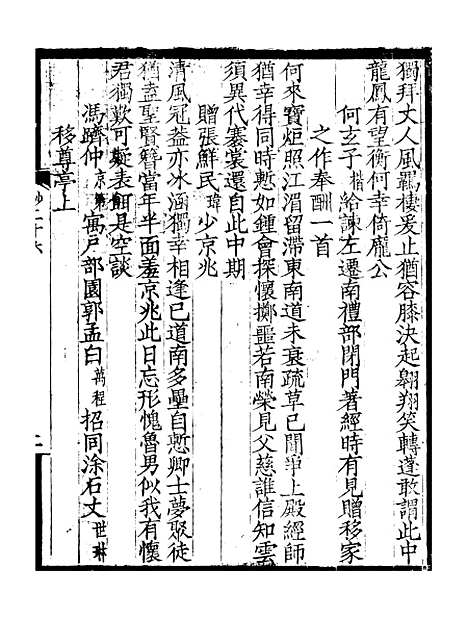 獨拜丈人風羈棲爰止猶容膝決起翱翔笑轉蓬敢謂此中
龍鳳有望衡何幸倚龐公
何玄子楷給諫左遷南禮部閉門著經時有見贈移家
之作奉酬一首
何來寶炬照江湄留滯東南道未衰疏草已聞爭上殿經師
猶幸得同時慙如鍾會探懷擲噩若南榮見父慈誰信知雲
須異代褰裳還自此中期
贈張鮮民瑋少京兆
清風冠蓋亦冰涵獨幸相逢已道南多壘自慙卿士夢聚徒
猶盍聖賢簪當年半面羞京兆此日忘形愧魯男似我有懷
君獨歎可疑表餌是空談
馮躋仲京第寓戶部園郭孟白萬程招同涂石丈世琳
移尊亭上
二